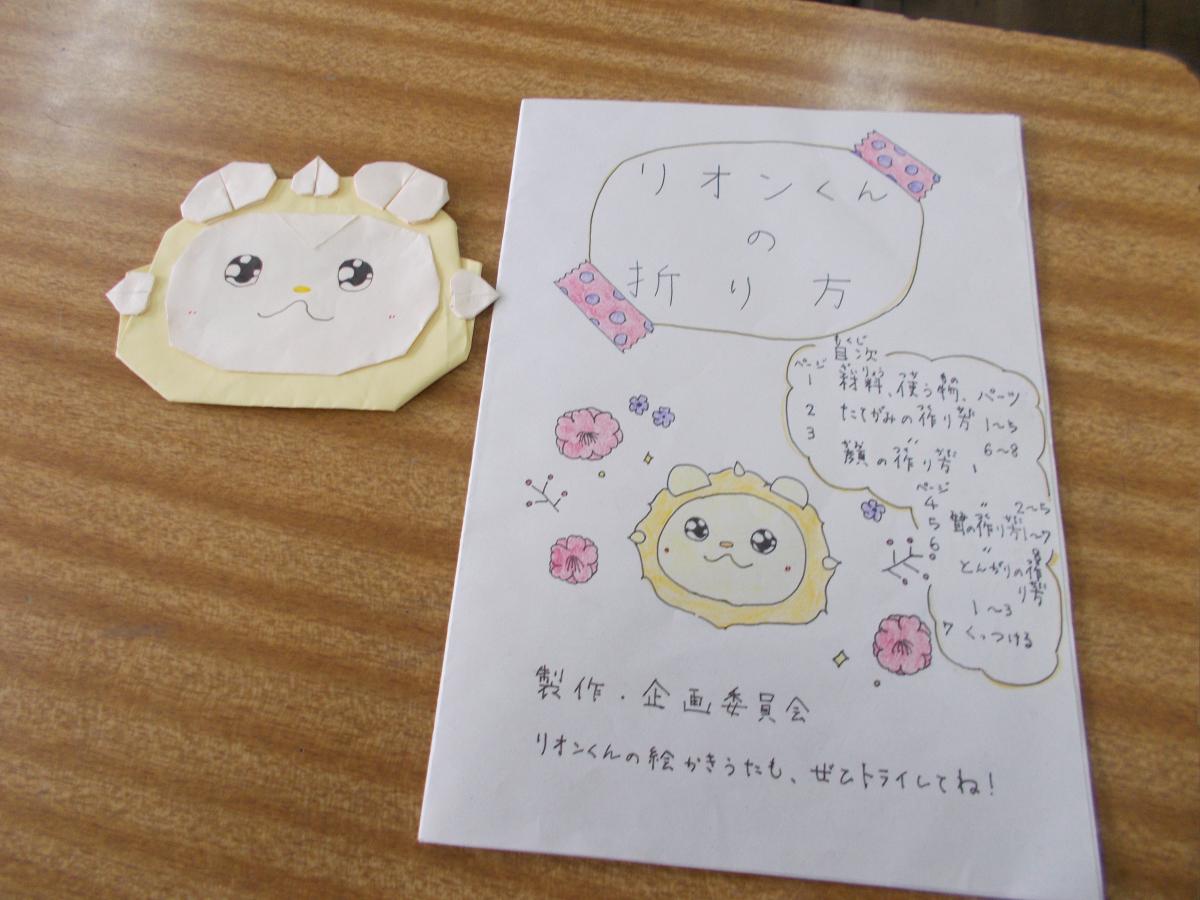 リオンくん
の
折り方
もくじ
目次
ページ
1 材料、使う物、パーツ
2 たてがみの作り方 1〜5
3 〃 6〜8
顔の作り方 1
ページ
4 〃 2〜5
5 の作り方1〜7
6 〃 8
とんがりの作り方
1〜3
7 くっつける
製作・企画委員会
リオンくんの絵かきうたも、ぜひトライしてね!